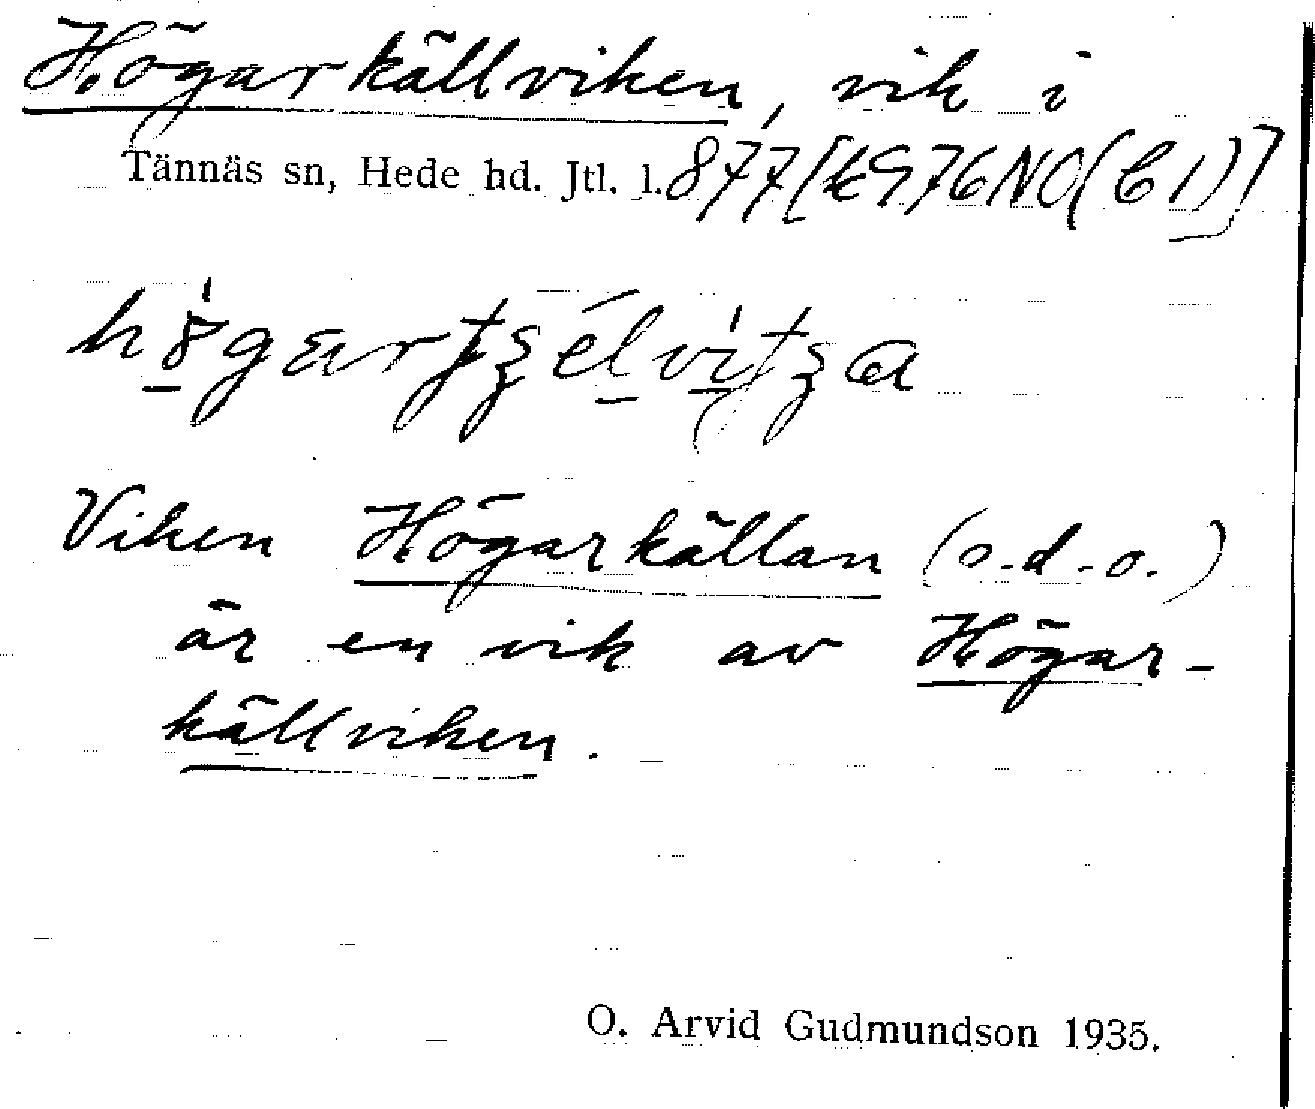 Högarkällviken, vik i
Tännäs sn, Hede hd. Jtl. l. 877[k976NO(C1)]
Viken Högarkällan (o.d.o.)
är en vik av Högar-
källviken.
O. Arvid Gudmundson 1935.